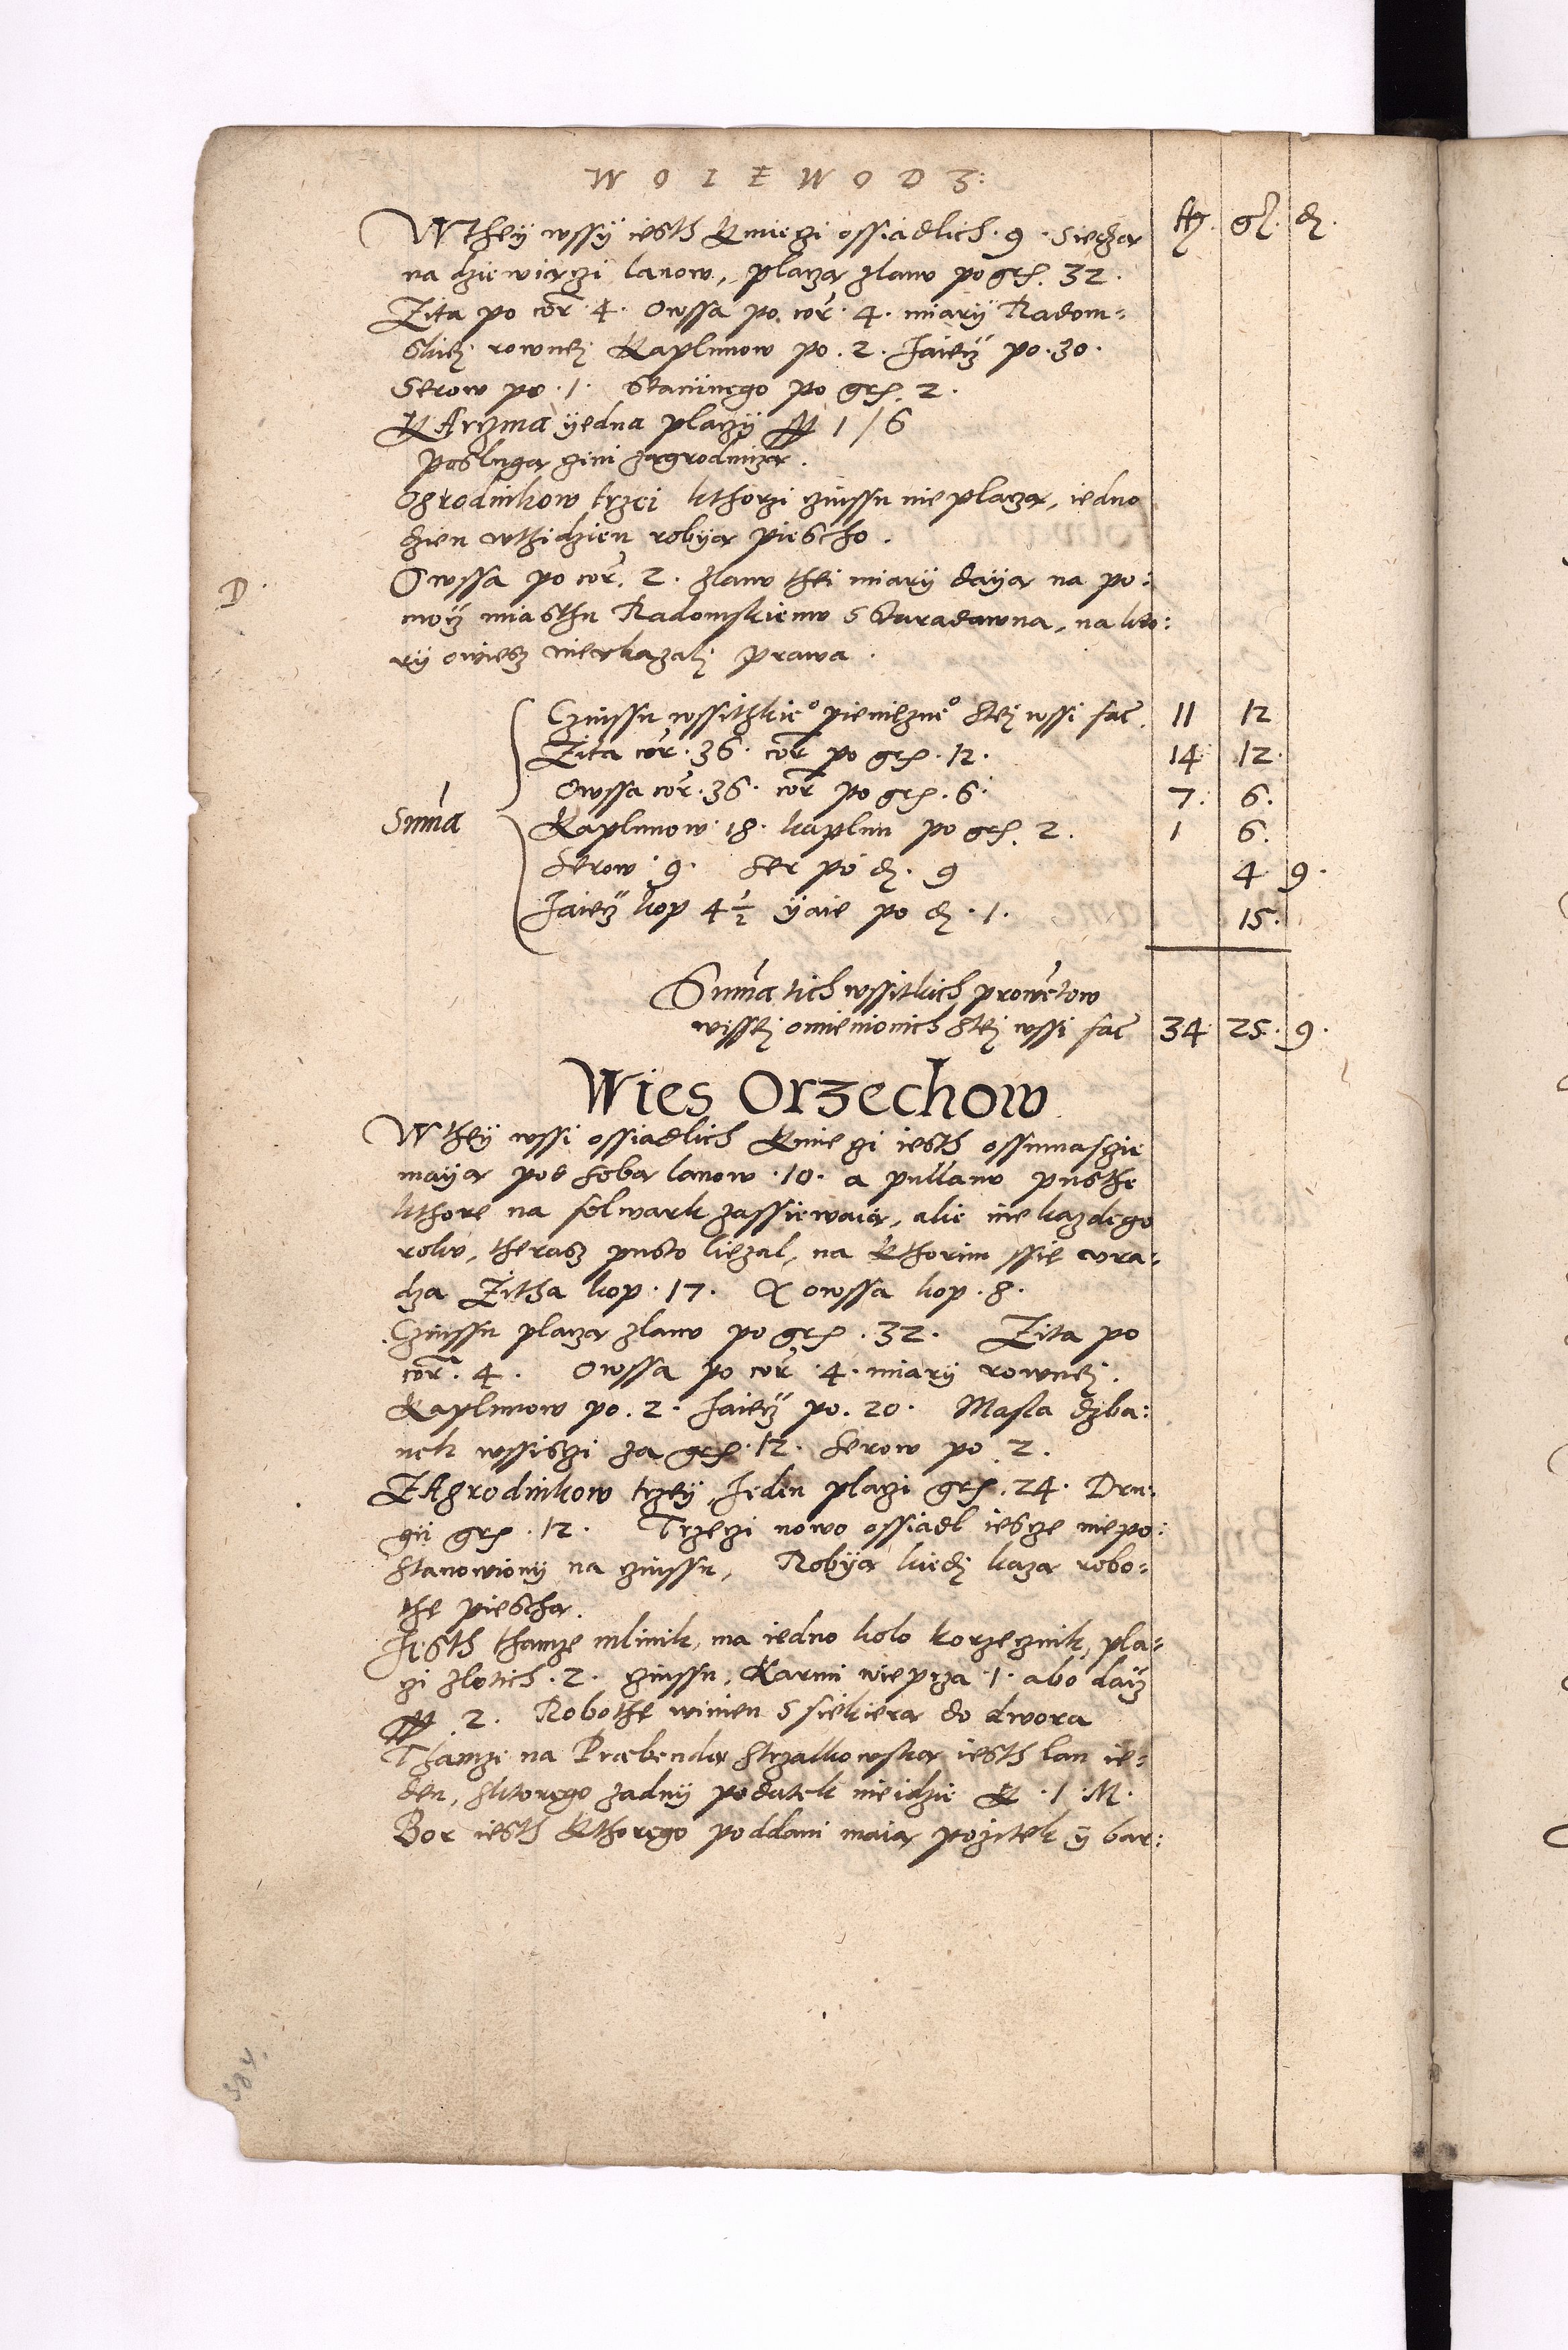 WOIEWODZ:
ff. gʳ. đ.
W they wssÿ iesth Kmieczi ossiadlich · 9 · Siedzą
na dziewiączi lanow, placzą zlanu po grſ. 32.
Zita po cor̃ 4. Owssa po cor̃ 4. miarÿ Radom=
skieÿ rowneÿ Kaplunow po . 2 . Jaiecz po . 30 .
Serow po . 1 . Stacÿinego po grſ. 2 .
KArczma ÿedna placzÿ ff 1 / 6
poslugą czini zagrodniczą .
Ogrodnikow trzei kthorzi czinssu nie placzą, iedno
dzien wthidzien robÿą piescho .
D.
Owssa po cor̃. 2 . zlanu thei miarÿ daÿą na po:
mocz miasthu Radomskiemu Staradawna, na kto:
rÿ owiesz nieukazalÿ prawa .
Suma
Czinssu wssitzkie° pienięzne° steÿ wssi fac̃. 11 12
Zita cor̃ . 36 . cor̃ po grſ . 12 . 14 12.
Owssa cor̃ . 36 . cor̃ po grſ . 6 . 7. 6.
Kaplunow 18 . kaplun po grſ. 2 . 1 6.
Serow . 9 . Ser po đ. 9 4 9.
Jaiecz kop 4 ½ ÿaie po đ . 1 . 15.
Suma tich wssitkich prowẽtow
wisseÿ omienionich steÿ wssi fac̃ 34 25. 9.
Wies Orzechow
W theÿ wssi ossiadlich Kmieczi iesth ossmnasczie
maÿą pod sobą lanow . 10 . a pullanu pusthe
kthore na folwark zassiewaią, alie nie kazdego
roku, therasz pusto liezal, na Kthorim ssie vra=
dza Zitha kop . 17 . & owssa kop . 8 .
Czinssu placzą zlanu po grſ . 32 . Zita po
cor̃ . 4 . Owssa po cor̃ . 4 . miarÿ rowneÿ .
Kaplunow po . 2 . Jaiecz po . 20 . Masla dzba:
nek wssisczi za grſ . 12 . Serow po 2 .
ZAgrodnikow trzeÿ, Jeden placzi grſ . 24 . Dru:
gii grſ . 12 . Trzeczi nowo ossiadl iescze niepo:
stanowionÿ na czinssu, Robÿą kiedÿ każą robo=
the pieschą .
Jesth thamze mlinik, ma iedno kolo korzecznik, pla=
czi zlotich . 2 . czinssu, Karmi wieprza . 1 . abo dacz
ff . 2 . Robothe winien s siekierą do dwora
Thamze na Præbendę Strzalkowską iesth lan ie=
den, sktorego zadnÿ podatek nieidzie & . 1 . M .
Bor iesth Kthorego poddani maią pożitek ÿ bar:
384.